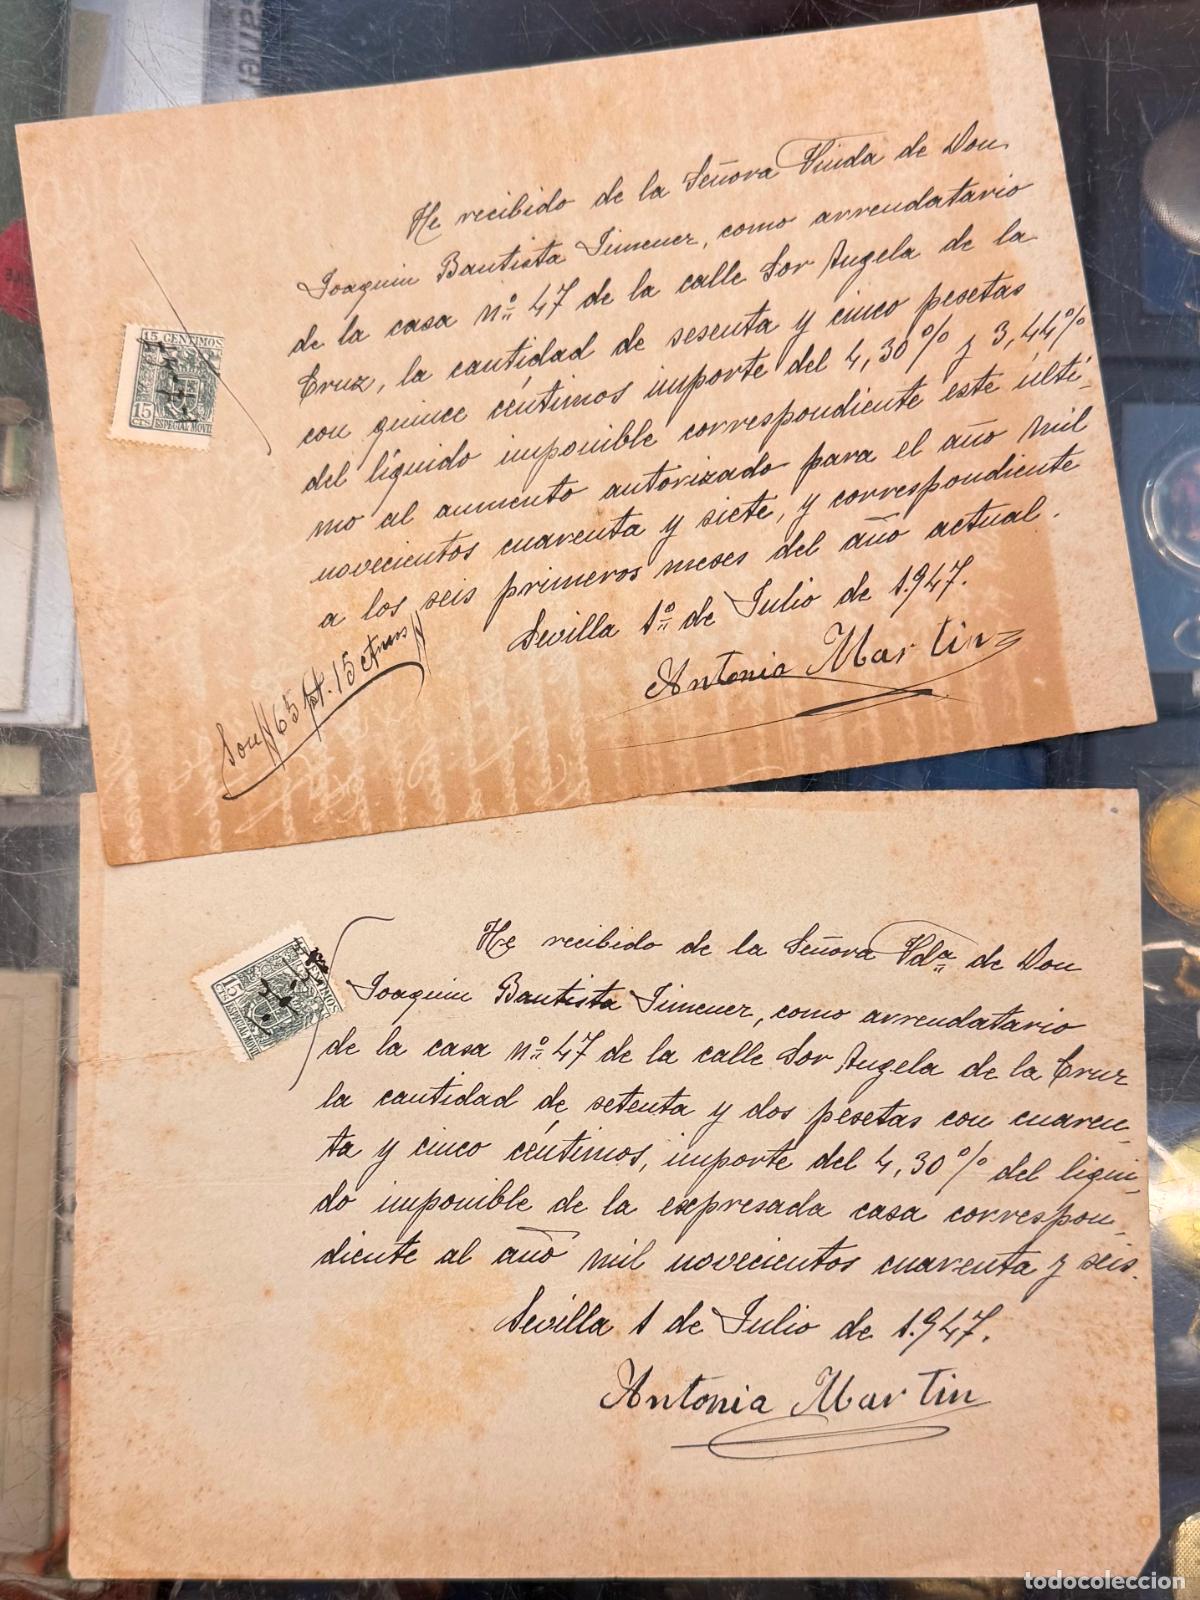 He recibido de la Señora Viuda de Don
Joaquin Bautista Jimenez, como arrendatario
de la casa nº 47 de la calle Sor Angela de la
Cruz, la cantidad de sesenta y cinco pesetas
con quince céntimos importe del 4,30% y 3,44%
del líquido imponible correspondiente este últi-
mo al aumento autorizado para el año mil
novecientos cuarenta y siete, y correspondiente
a los seis primeros meses del año actual.
Sevilla 1º de Julio de 1.947.
Antonia Martin
Son # 65 pt. 15 ctmos #
15 CENTIMOS
15
CTS
ESPECIAL MOVIL
He recibido de la Señora Vdª de Don
Joaquin Bautista Jimenez, como arrendatario
de la casa nº 47 de la calle Sor Angela de la Cruz
la cantidad de setenta y dos pesetas con cuaren-
ta y cinco céntimos, importe del 4,30% del liqui-
do imponible de la expresada casa correspon-
diente al año mil novecientos cuarenta y seis.
Sevilla 1 de Julio de 1.947.
Antonia Martin
15 CENTIMOS
15
CTS
ESPECIAL MOVIL
todocoleccion